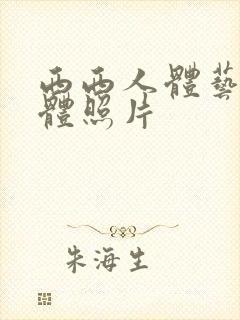 西西人體藝
體照片
朱海生